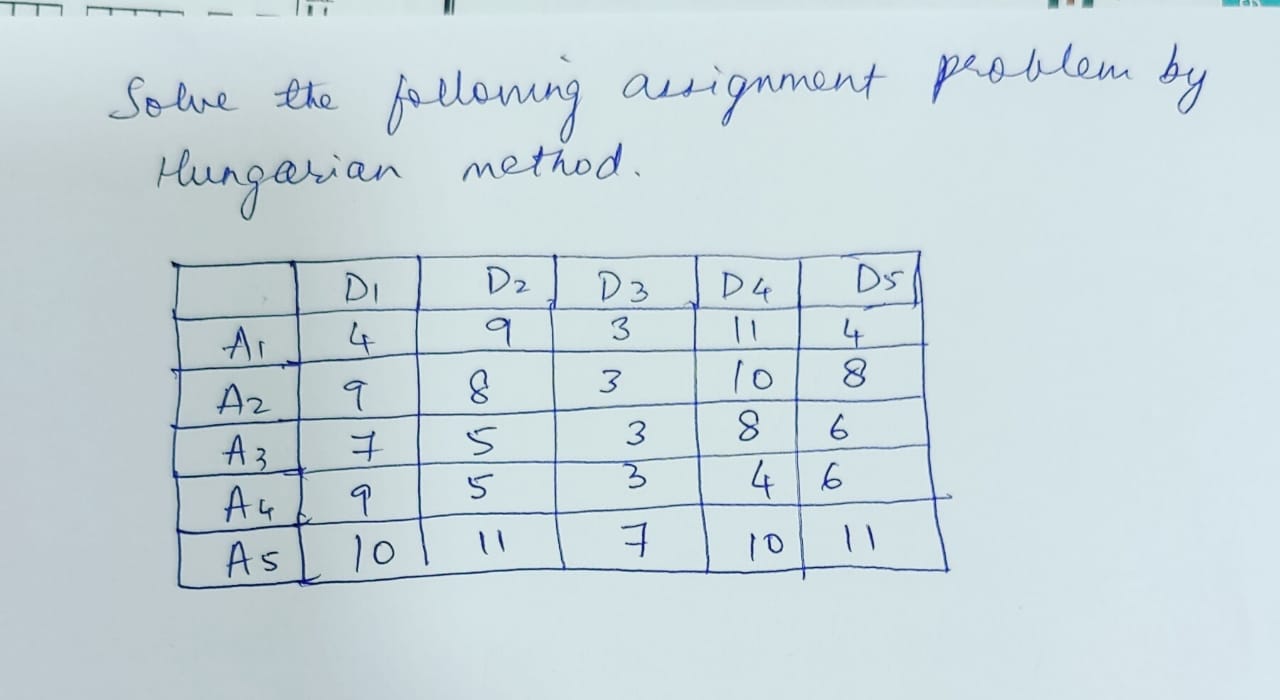 Solve the following assignment problem by
Hungarian method.
D1 D2 D3 D4 D5
A1 4 9 3 11 4
A2 9 8 3 10 8
A3 7 5 3 8 6
A4 9 5 3 4 6
A5 10 11 7 10 11